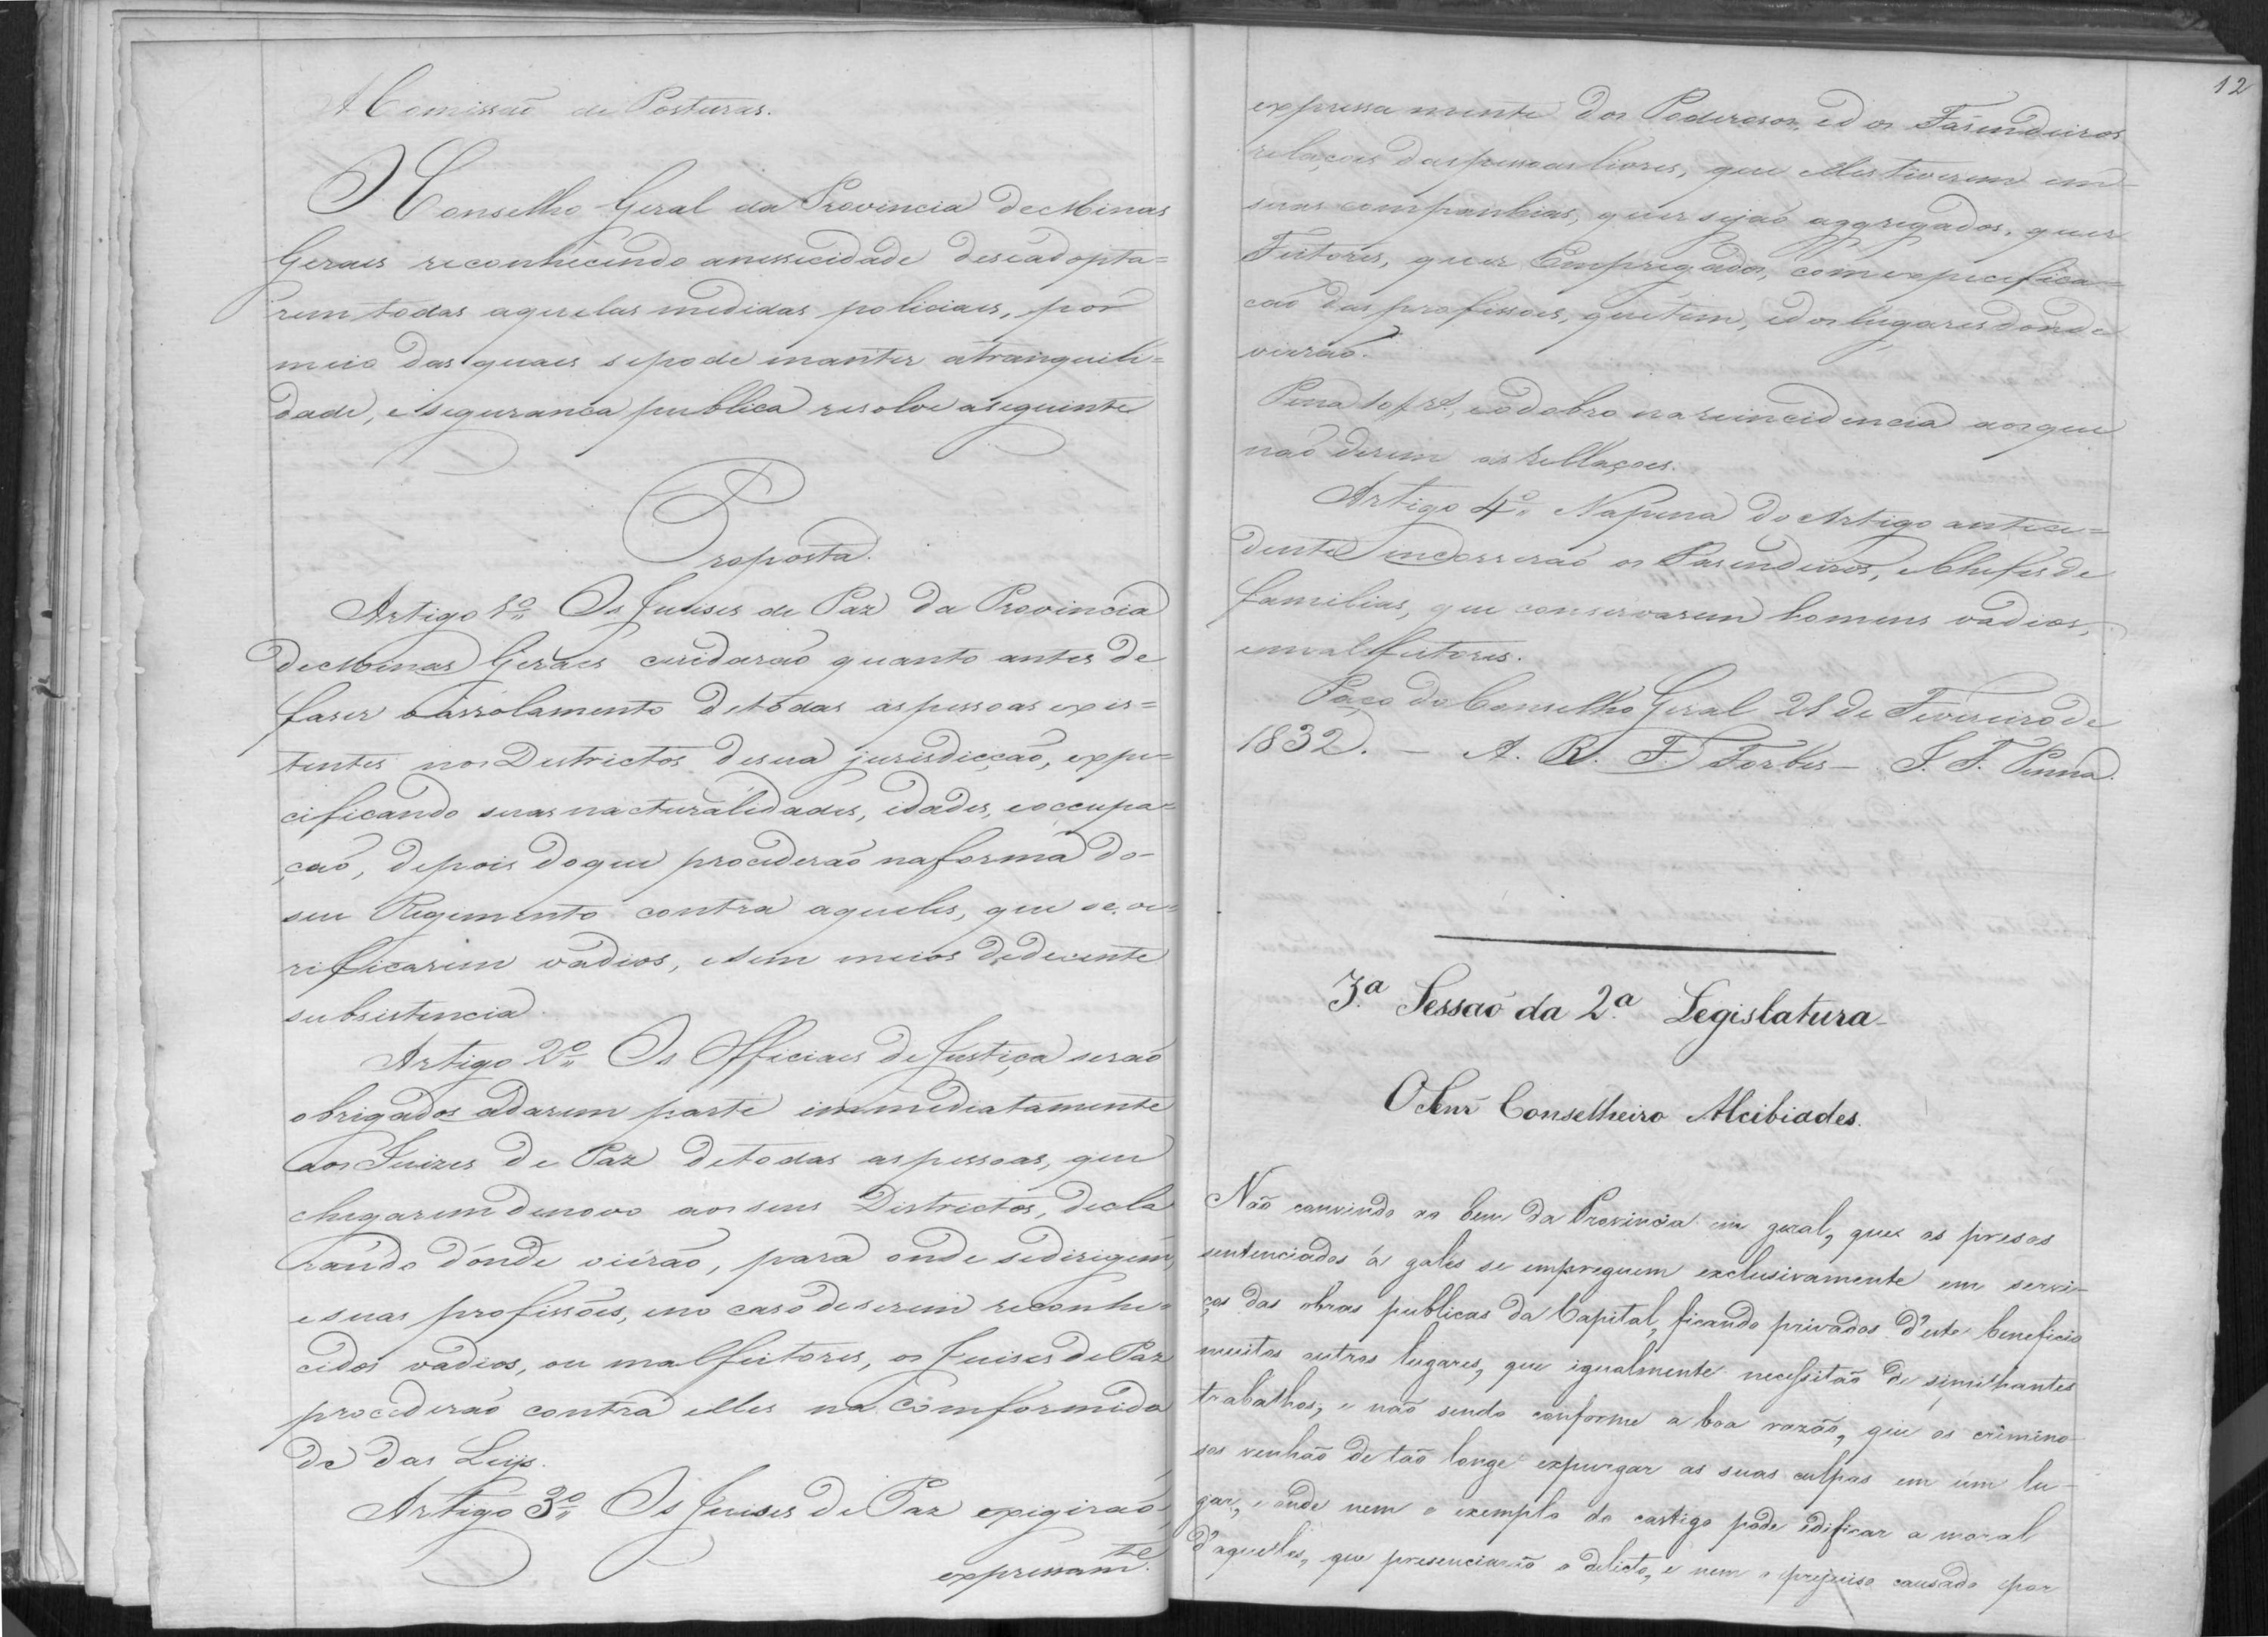 A Comissaõ de Posturas.
O Conselho Geral da Provincia de Minas
Geraes reconhecendo a nessecidade de se adopta=
rem todas aquelas medidas policiaes, por
meio das quaes se pode manter a tranquili=
dade, e seguranca publica resolve a seguinte
Proposta.
Artigo 1º. Os Juises de Paz da Provincia
de Minas Geraes cuidaraõ quanto antes de
faser o arrolamento de todas as pessoas exis=
tentes nos Destrictos de sua jurisdicçaõ, expe=
cificando suas nacturalidades, idades, e occupa=
çaõ, depois do que procederaõ na forma do
seu Regimento contra aqueles, que se ve=
rificarem vadios, e sem meios de decente
subsistencia.
Artigo 2º. Os Officiaes de Justiça seraõ
obrigados a darem parte immediatamente
aos Juizes de Paz de todas as pessoas, que
chegarem de novo aos seus Districtos, decla
rando donde vieraõ, para onde se dirigem,
e suas profissões, e no caso de serem reconhe=
cidos vadios, ou malfeitores, os Juises de Paz
procederaõ contra elles na comformida
de das Leys.
Artigo 3º. Os Juises de Paz exigiraõ
expressamte.
12
expressamente dos Poderosos, e dos Fasendeiros
relaçoes das pessoas livres, que elles tiverem em
suas companhias, quer sejaõ aggregados, quer
Feitores, quer Empregados, com expecifica=
caõ das profissoes, que tem, e dos lugares donde
vieraõ.
Pena 10$rs., e o dobro na reincidencia aos que
naõ derem as rellaçoes.
Artigo 4º. Na pena do Artigo antece=
dente incorreraõ os Fasendeiros, e Chefes de
familias, que conservarem homens vadios,
e malfeitores.
Paço do Conselho Geral 21 de Fevereiro de
1832. — A. R. F. Forbes — J. F. Penna.
3.ª Sessaõ da 2.ª Legislatura
O Senr Conselheiro Alcibiades.
Não convindo ao bem da Provincia em geral, que os presos
sentenciados á galés se empreguem exclusivamente em servi-
ços das obras publicas da Capital, ficando privados d'este beneficio
muitos outros lugares, que igualmente necessitão de similhantes
trabalhos, e não sendo conforme a boa razão, que os crimino-
sos venhão de tão longe expurgar as suas culpas em um lu-
gar, onde nem o exemplo do castigo póde edificar a moral
d'aquelles, que presenciarão o delicto, e nem o prejuiso causado por